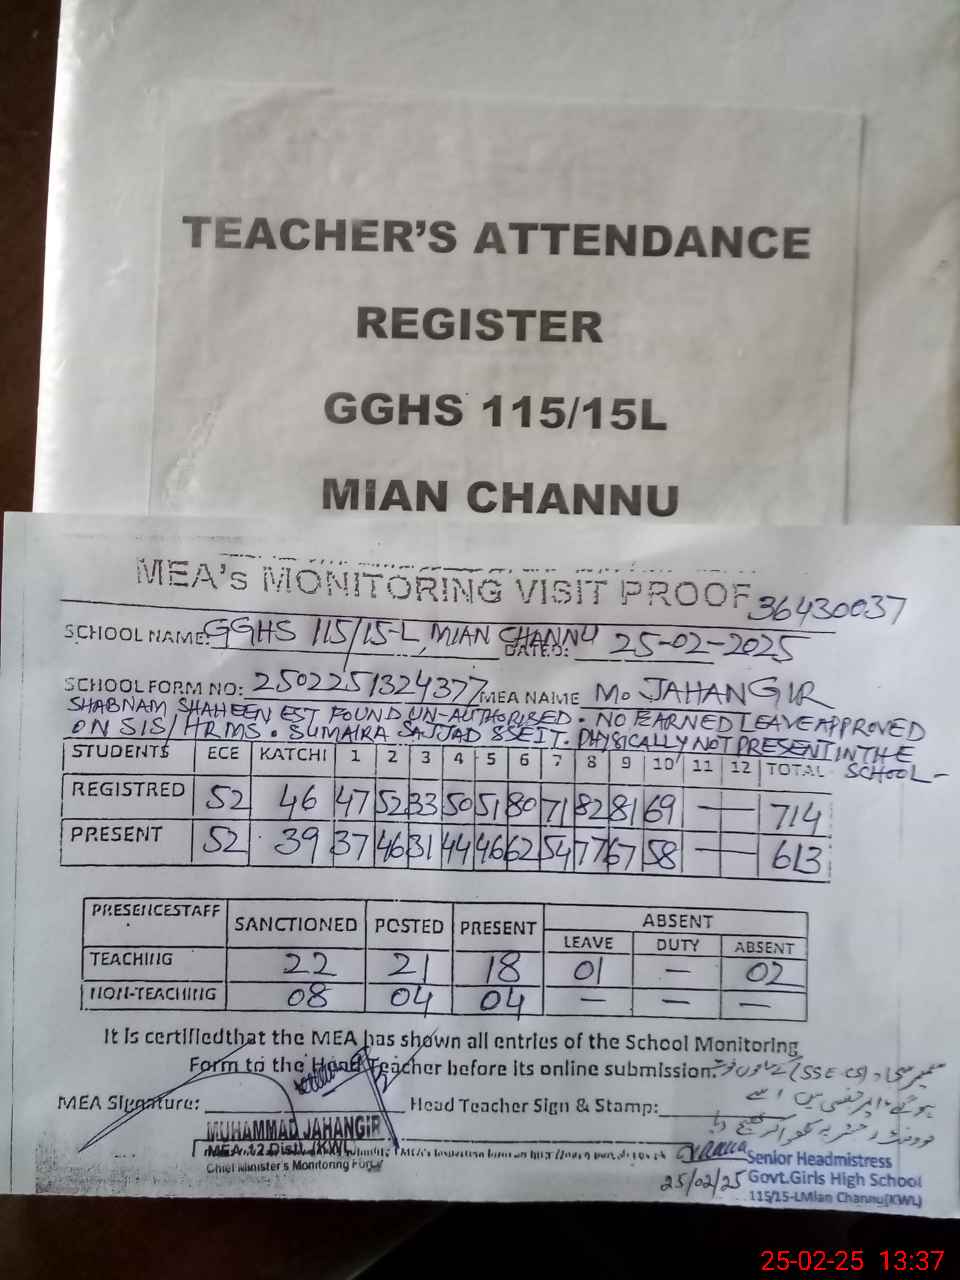 TEACHER'S ATTENDANCE
REGISTER
GGHS 115/15L
MIAN CHANNU
MEA's MONITORING VISIT PROOF 36430037
SCHOOL NAME: GGHS 115/15-L, MIAN CHANNU DATED: 25-02-2025
SCHOOL FORM NO: 2502251324377 MEA NAME Mo JAHANGIR
SHABNAM SHAHEEN EST FOUND UN-AUTHORISED. NO EARNED LEAVE APPROVED
ON SIS/HRMS. SUMAIRA SAJJAD SSEIT. PHYSICALLY NOT PRESENT IN THE
SCHOOL-
STUDENTS ECE KATCHI 1 2 3 4 5 6 7 8 9 10 11 12 TOTAL
REGISTRED 52 46 47 52 33 50 51 80 71 82 81 69 — — 714
PRESENT 52 39 37 46 31 44 46 62 54 77 67 58 — — 613
PRESENCESTAFF SANCTIONED POSTED PRESENT ABSENT
LEAVE DUTY ABSENT
TEACHING 22 21 18 01 — 02
NON-TEACHING 08 04 04 — — —
It is certifiedthat the MEA has shown all entries of the School Monitoring
Form to the Head Teacher before its online submission.
(SSE-CS)
MEA Signature: Head Teacher Sign & Stamp:
MUHAMMAD JAHANGIR
MEA 12 Distt. (KWL)
Chief Minister's Monitoring Force
Senior Headmistress
25/02/25 Govt.Girls High School
115/15-LMian Channu(KWL)
25-02-25 13:37